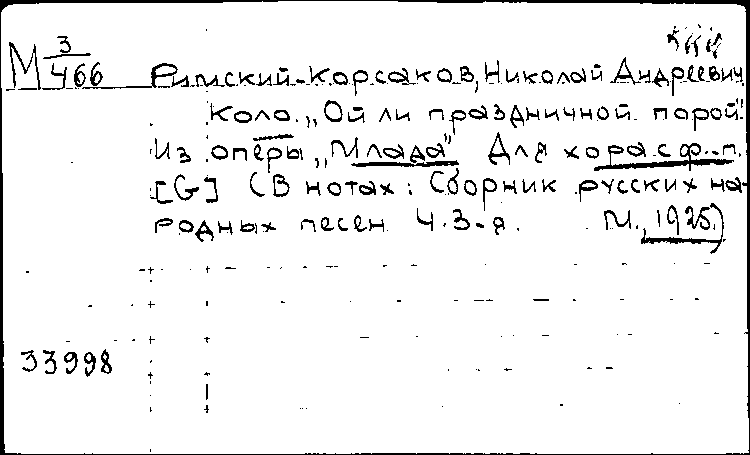 М 3/466 Римский-Корсаков, Николай Андреевич
Коло. „Ой ли праздничной порой".
Из оперы „Млада" Для хора с ф.-п.
[G] (В нотах: Сборник русских на-
родных песен Ч.3-я. М., 1925.)
33998